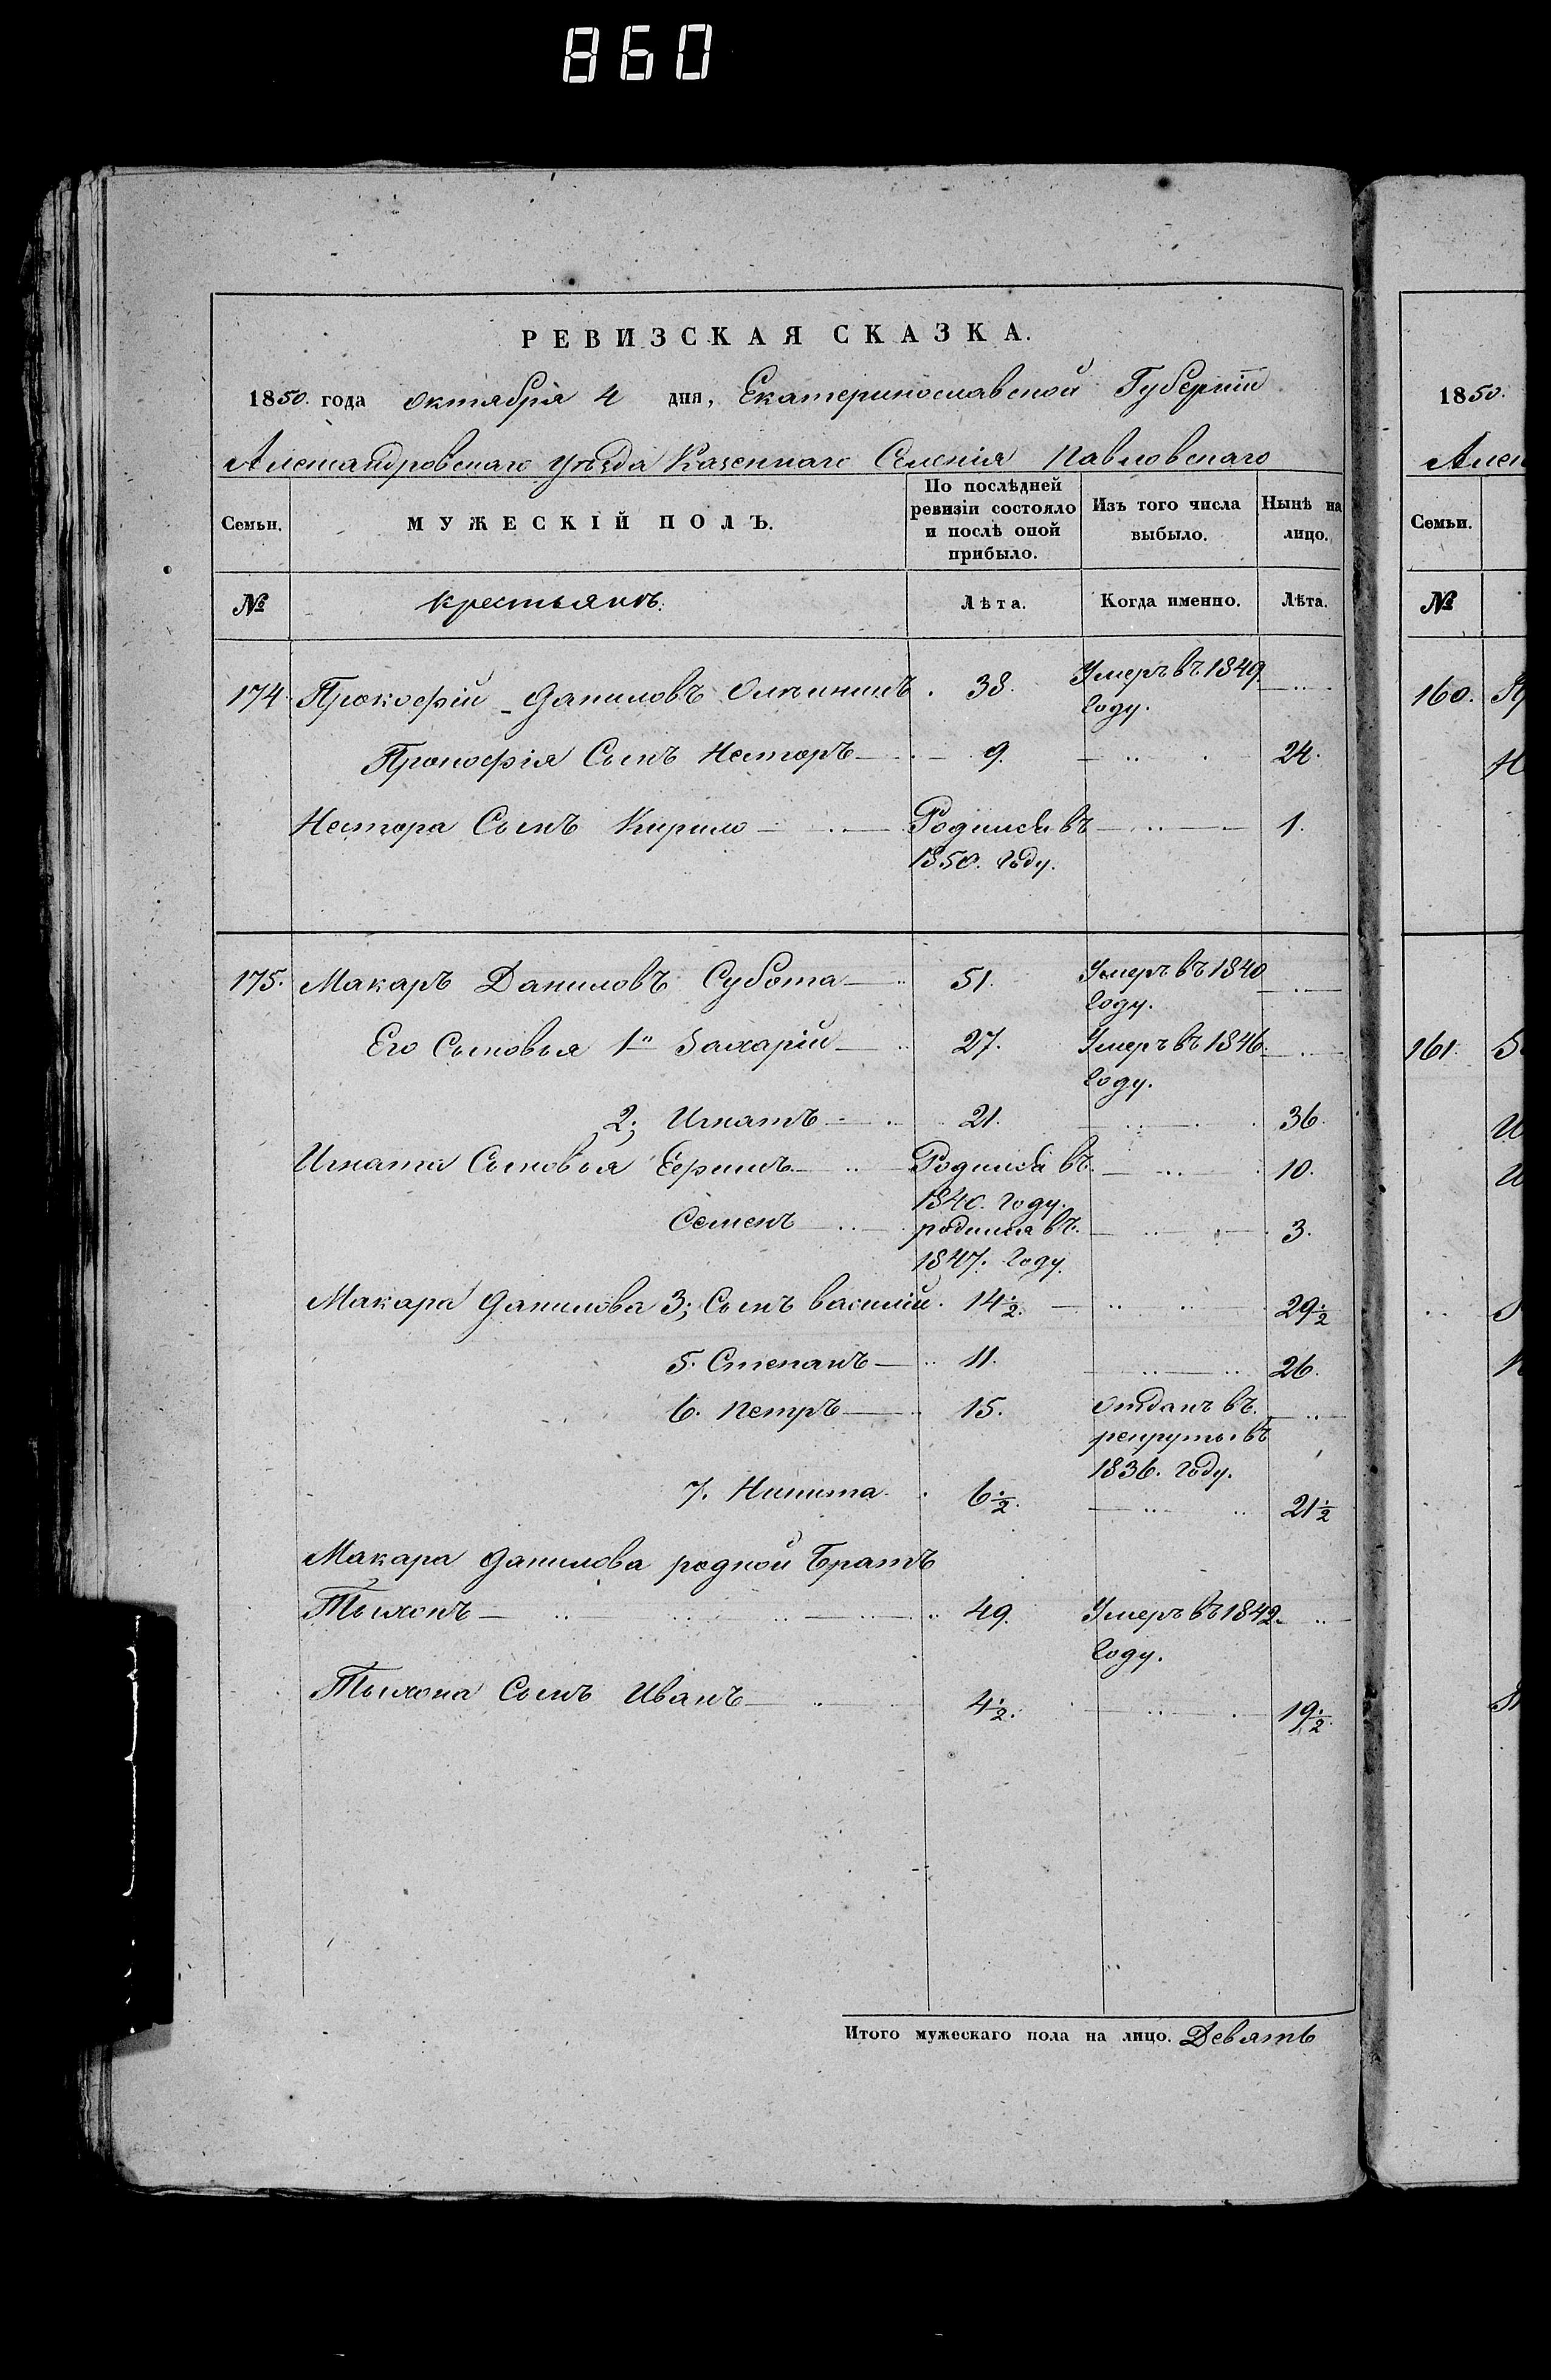 860
РЕВИЗСКАЯ СКАЗКА.
1850. года октября 4 дня, Екатеринославской Губерніи
Александровскаго Уѣзда Казеннаго Селенія Павловскаго
Семьи. МУЖЕСКІЙ ПОЛЪ. По послѣдней ревизіи состояло и послѣ оной прибыло. Изъ того числа выбыло. Нынѣ на лицо.
№ крестьянъ. Лѣта. Когда именно. Лѣта.
174 Прокофій Даниловъ 38. Умеръ въ 1849
году.
Прокофія Сынъ Несторъ 9. 24.
Нестора Сынъ Кирило Родился въ 1.
1850. году.
175. Макаръ Даниловъ Субота 51. Умеръ въ 1840
году.
Его Сыновья 1й Захарій 27. Умеръ въ 1846.
году.
2; Игнатъ 21. 36.
Игната Сыновья Ефимъ Родился въ 10.
1840. году.
Семенъ родился въ 3.
1847. году.
Макара Данилова 3; Сынъ василій. 14½. 29½
5. Степанъ 11. 26.
6. Петръ 15. отданъ въ
рекруты въ
1836. году.
7. Никита 6½. 21½
Макара Данилова родной Братъ
Тыхонъ 49. Умеръ въ 1842.
году.
Тыхона Сынъ Иванъ 4½. 19½.
Итого мужескаго пола на лицо. Девять
1850.
Алек
Семьи.
№
160.
161.